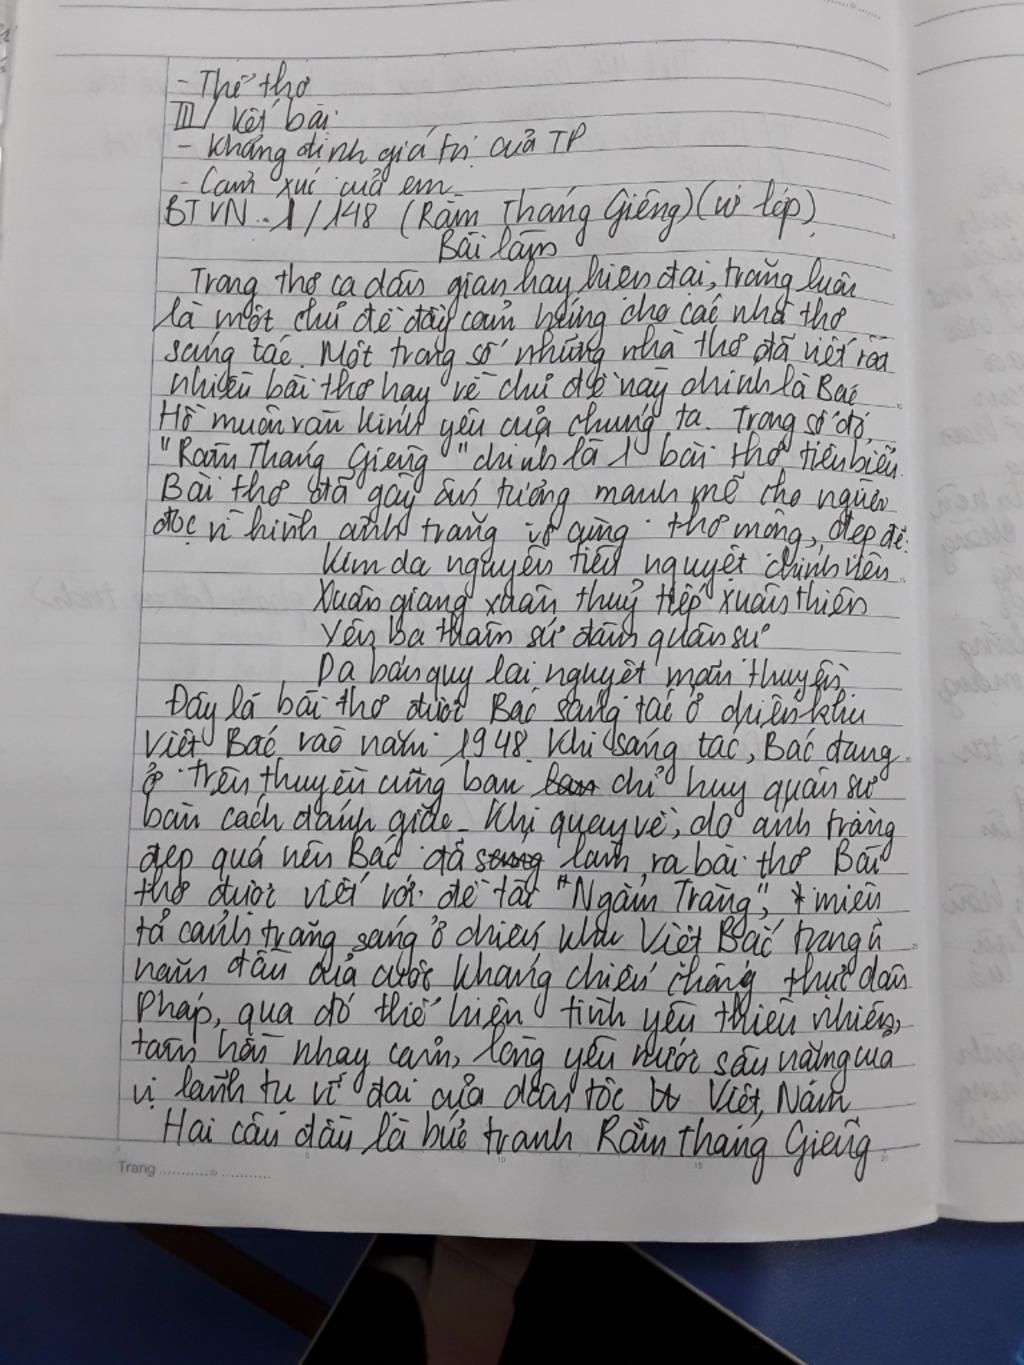 - Thể thơ
III/ Kết bài:
- Khẳng định giá trị của TP
- Cảm xúc của em
BTVN: 1/148 (Rằm Tháng Giêng) (vở lớp)
Bài làm
Trong thơ ca dân gian hay hiện đại, trăng luôn
là một chủ đề đầy cảm hứng cho các nhà thơ
sáng tác. Một trong số những nhà thơ đã viết rất
nhiều bài thơ hay về chủ đề này chính là Bác
Hồ muôn vàn kính yêu của chúng ta. Trong số đó,
"Rằm Tháng Giêng" chính là 1 bài thơ tiêu biểu.
Bài thơ đã gây ấn tượng mạnh mẽ cho người
đọc vì hình ảnh trăng vô cùng thơ mộng, đẹp đẽ:
Kim dạ nguyên tiêu nguyệt chính viên
Xuân giang xuân thuỷ tiếp xuân thiên
Yên ba thâm xứ đàm quân sự
Dạ bán quy lai nguyệt mãn thuyền
Đây là bài thơ được Bác sáng tác ở chiến khu
Việt Bắc vào năm 1948. Khi sáng tác, Bác đang
ở trên thuyền cùng ban chỉ huy quân sự
bàn cách đánh giặc. Khi quay về, do ánh trăng
đẹp quá nên Bác đã làm ra bài thơ. Bài
thơ được viết với đề tài "Ngắm Trăng", miêu
tả cảnh trăng sáng ở chiến khu Việt Bắc trong
năm đầu của cuộc kháng chiến chống thực dân
Pháp, qua đó thể hiện tình yêu thiên nhiên,
tâm hồn nhạy cảm, lòng yêu nước sâu nặng của
vị lãnh tụ vĩ đại của dân tộc Việt Nam
Hai câu đầu là bức tranh Rằm Tháng Giêng
Trang